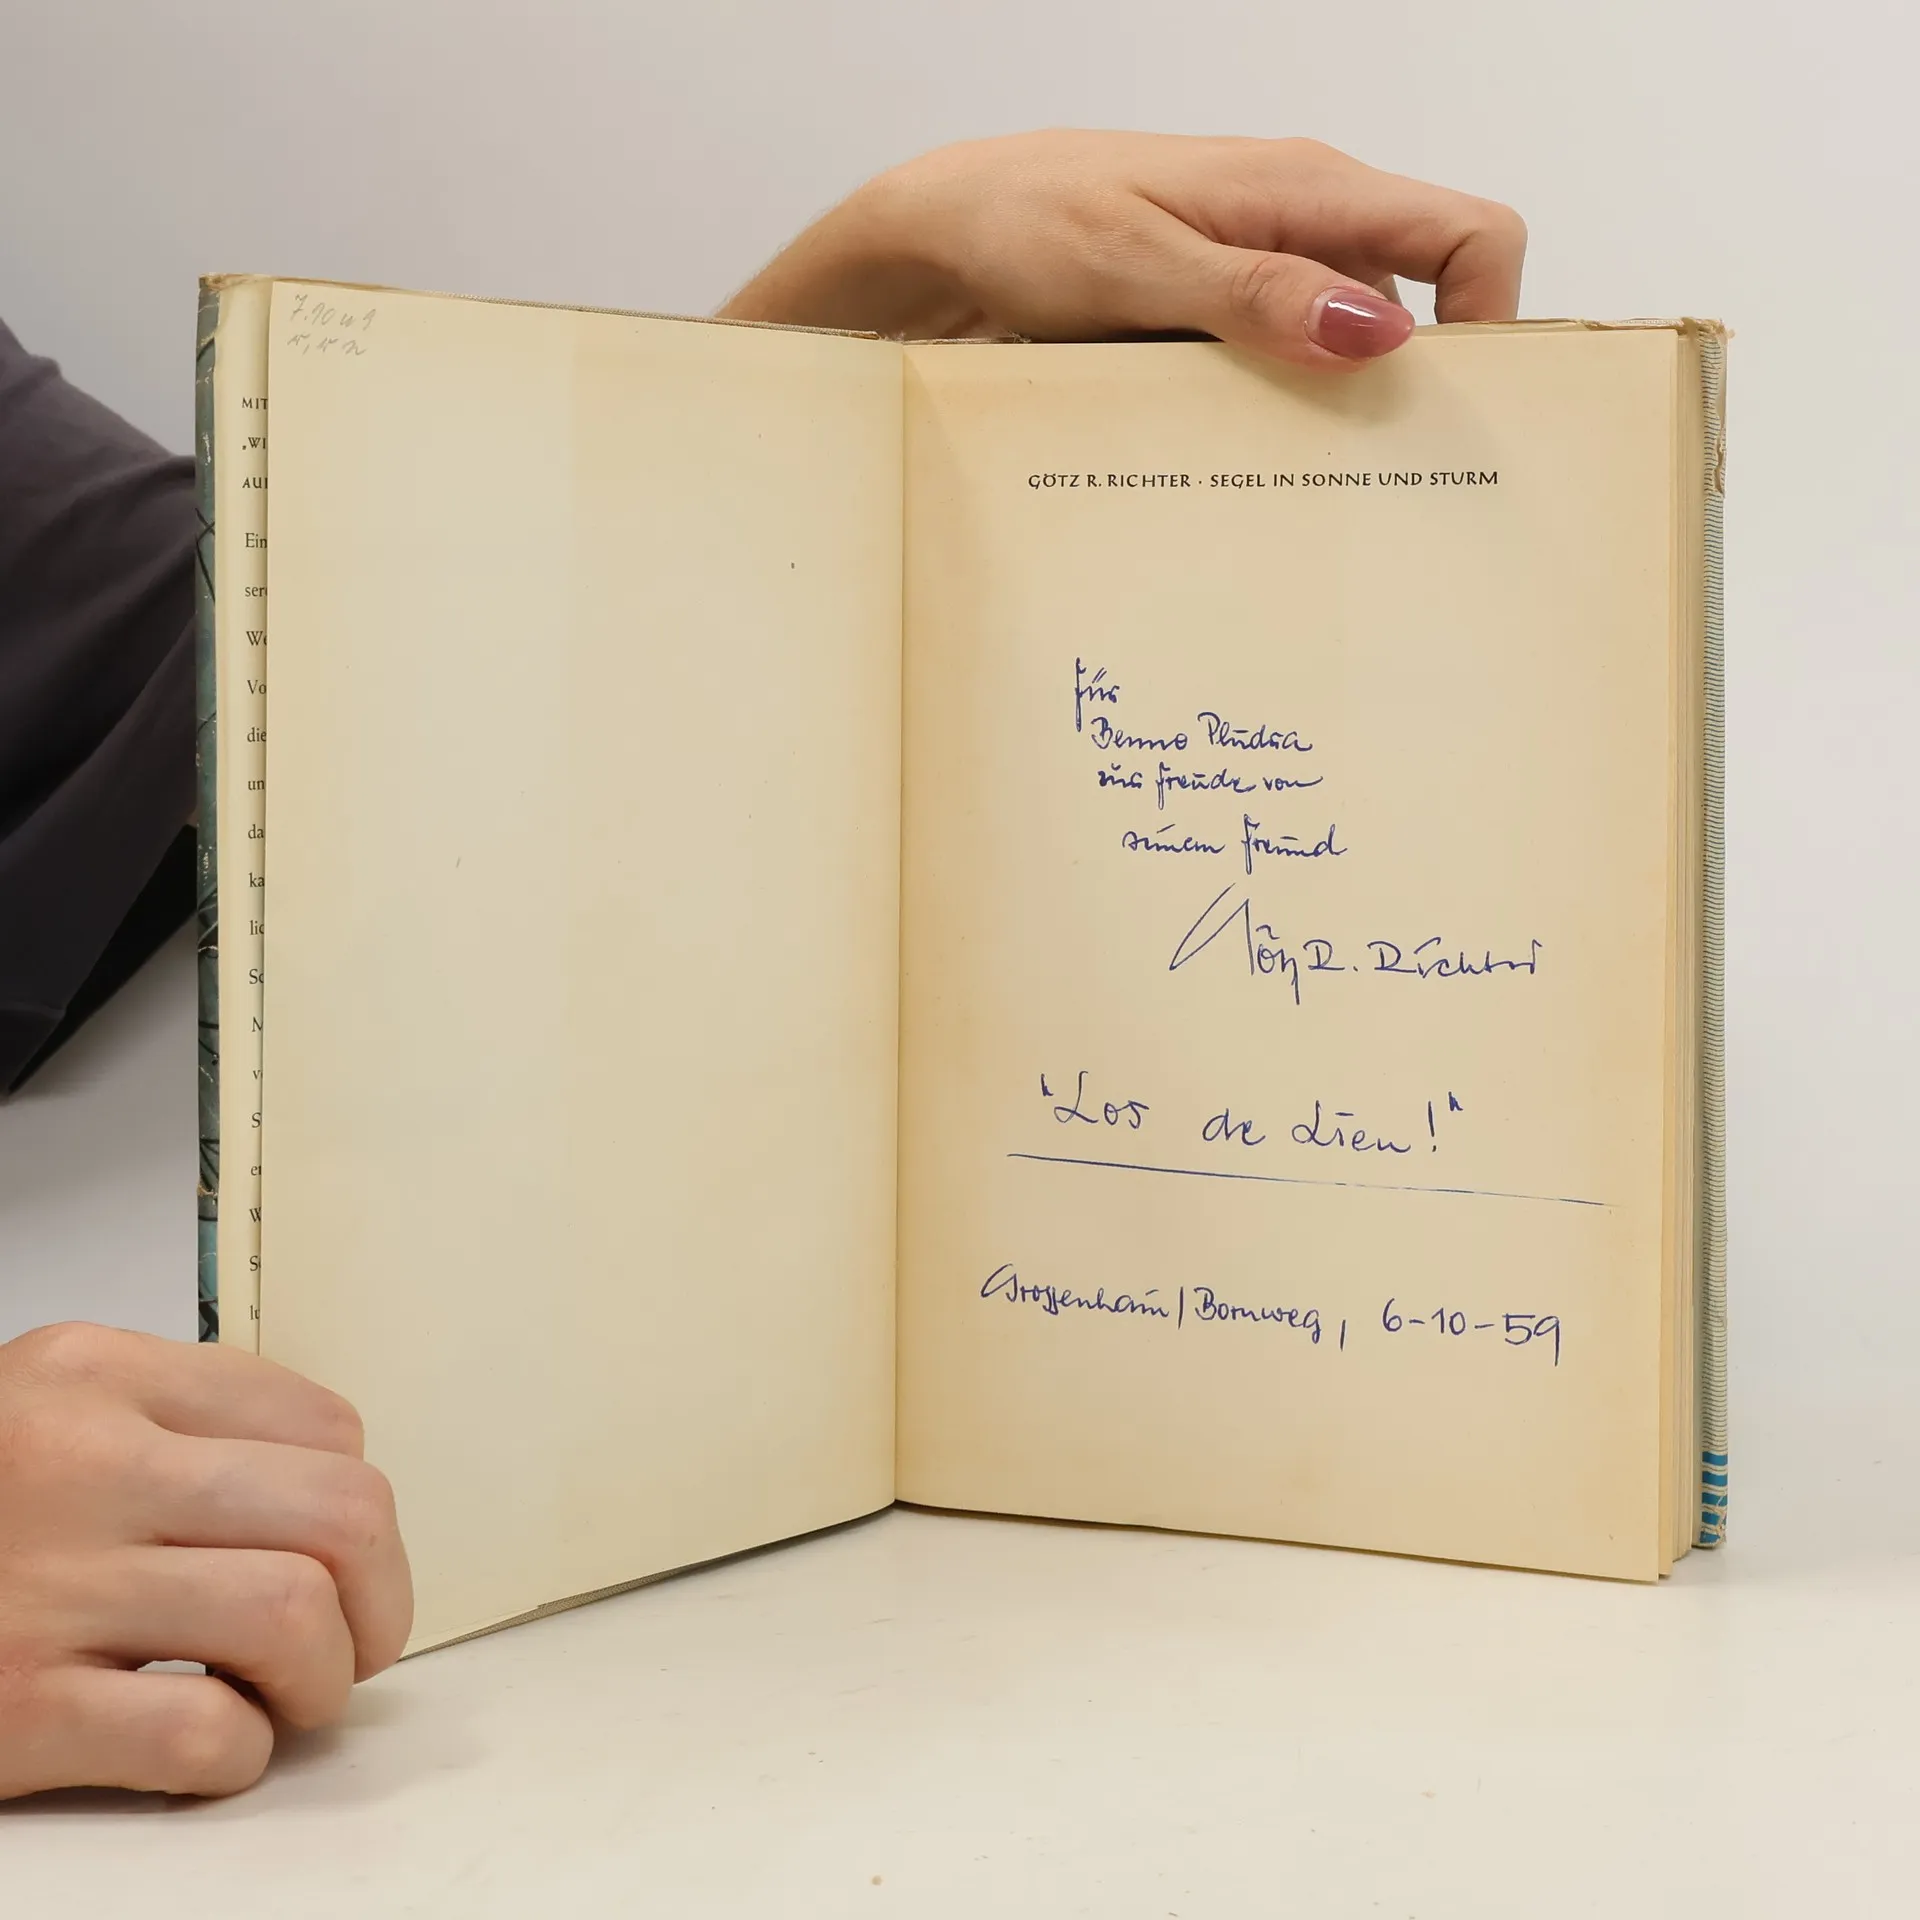 7.10 u 9
MIT
„WI
AUF
Ein
sere
We
Vo
die
un
da
ka
lic
Sc
M
v
S
er
W
Se
lu
GÖTZ R. RICHTER · SEGEL IN SONNE UND STURM
für
Benno Pludra
zur Freude von
seinem Freund
Götz R. Richter
"Los de Lien!"
Grossenhain / Bornweg, 6-10-59